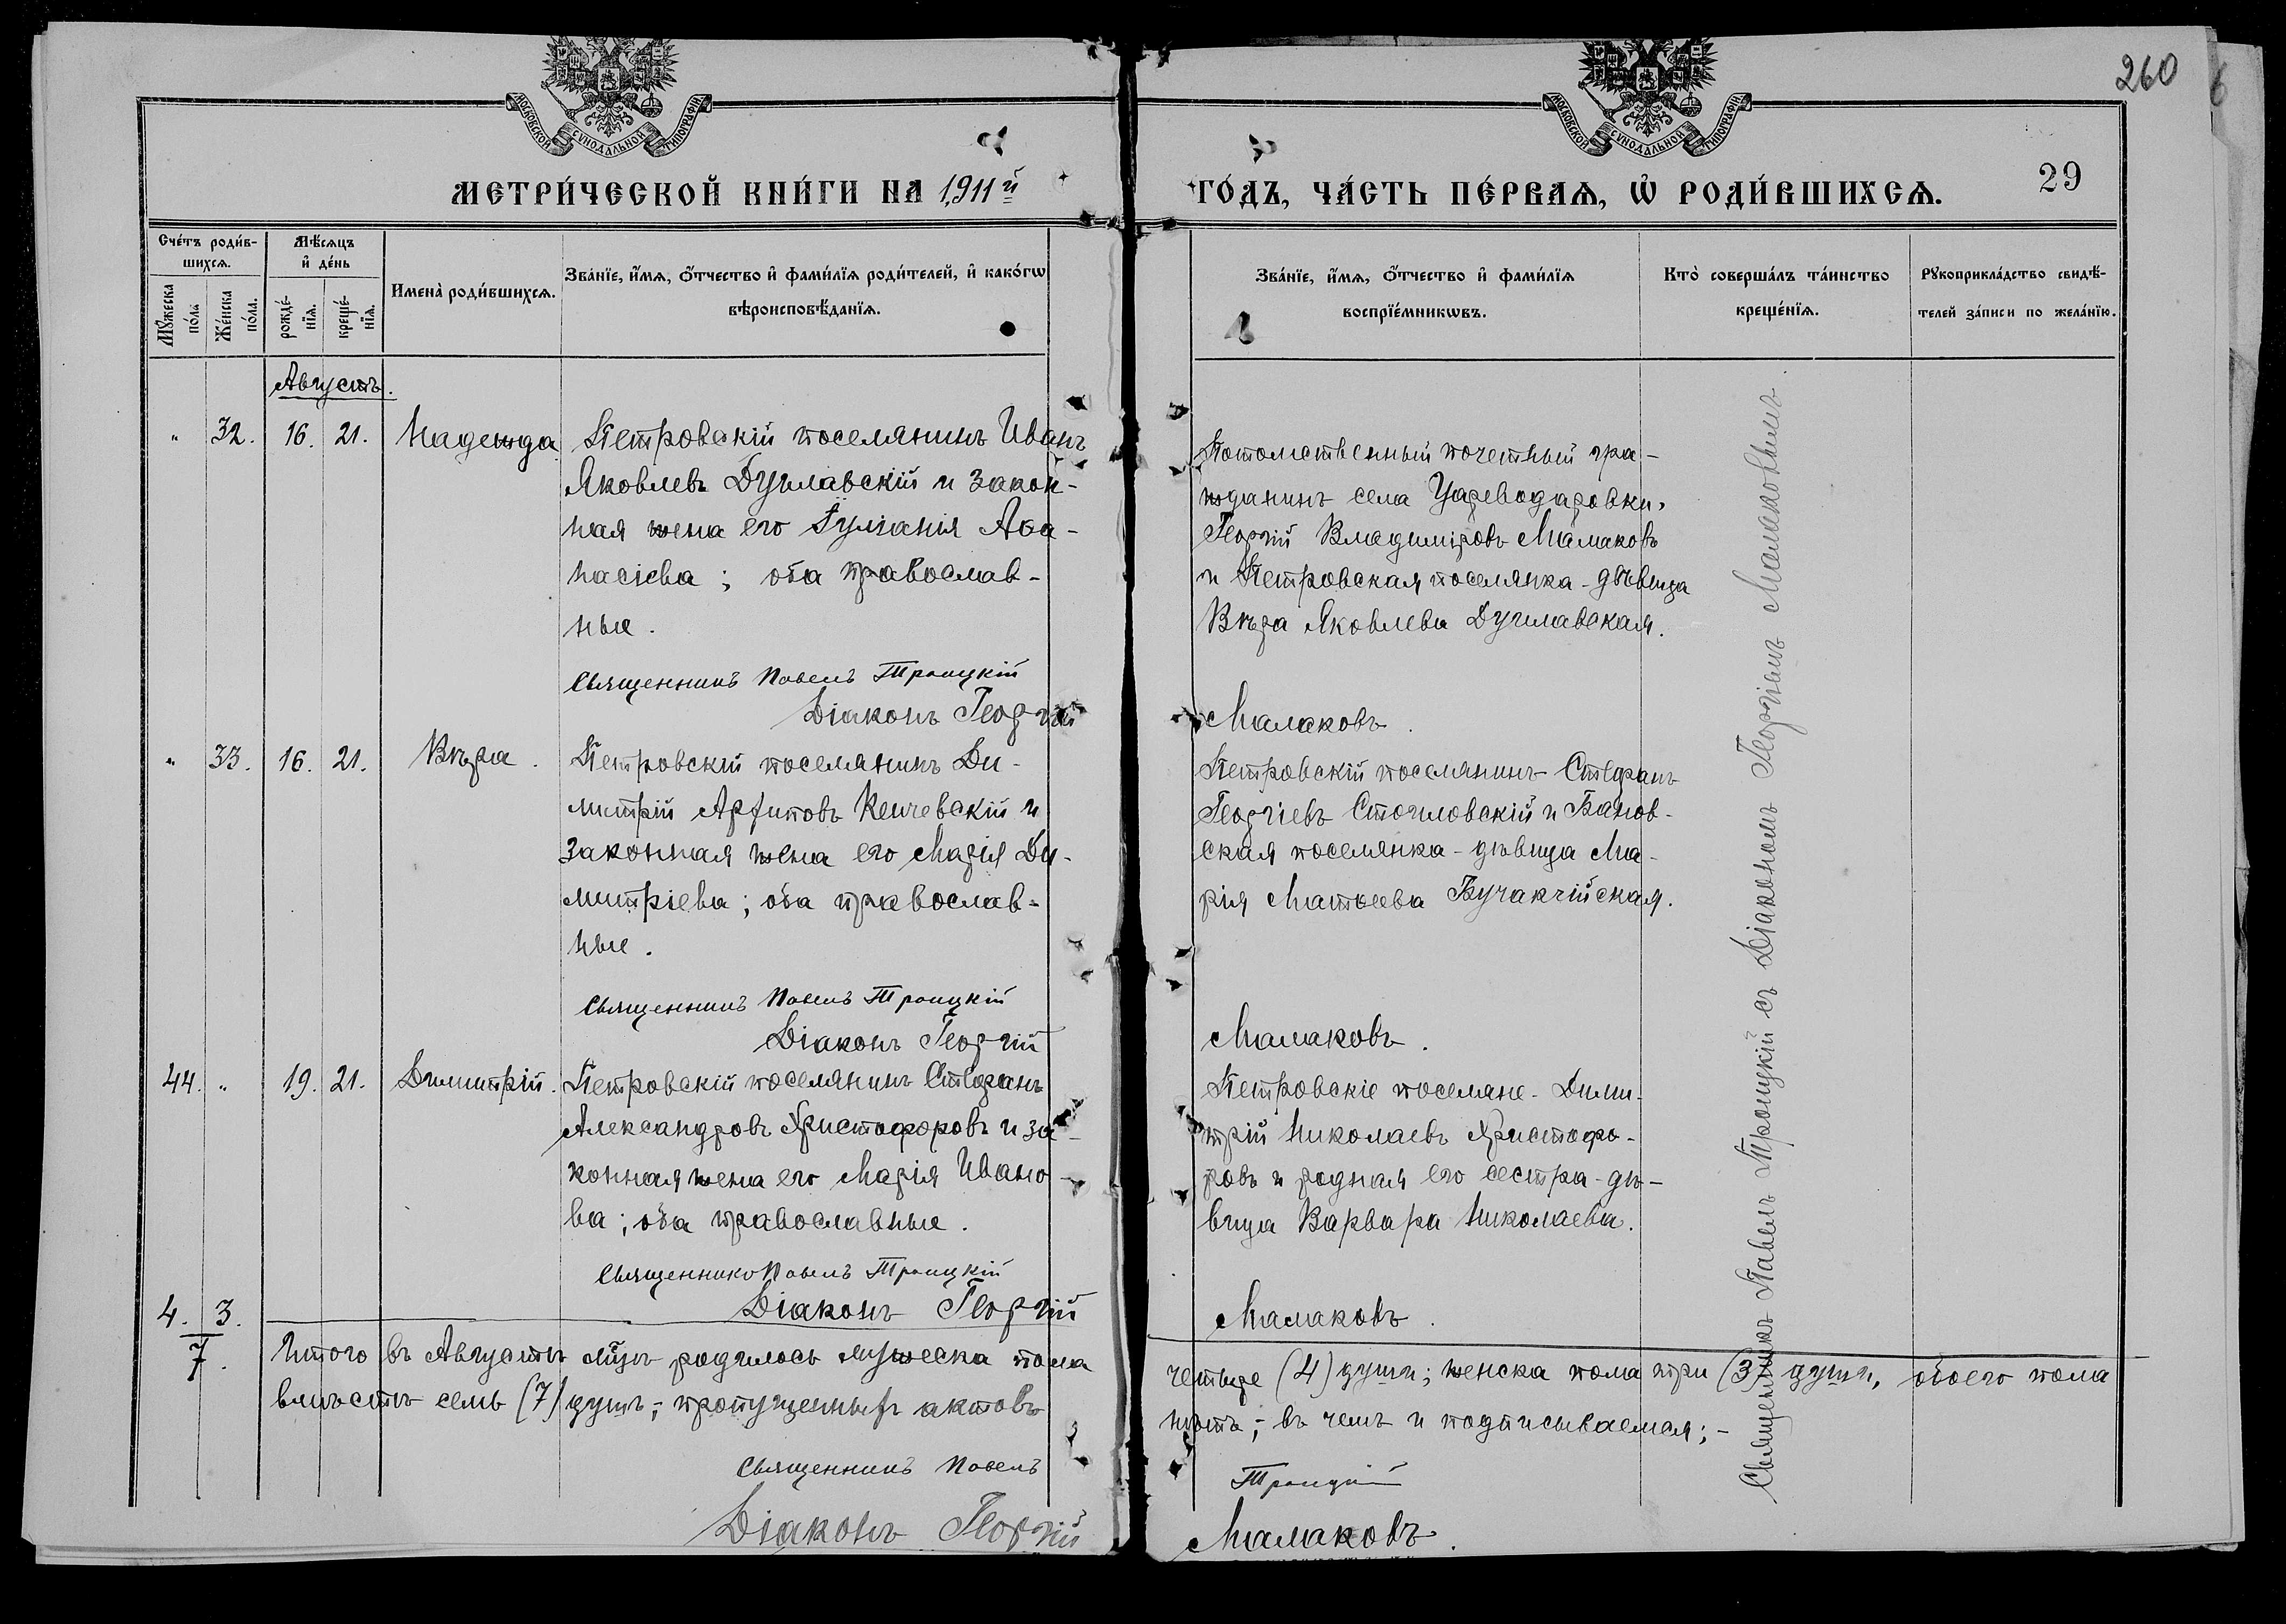 260
МОСКОВСКОЙ СѴНОДАЛЬНОЙ ТИПОГРАФІИ
МОСКОВСКОЙ СѴНОДАЛЬНОЙ ТИПОГРАФІИ
МЕТРИ́ЧЕСКОЙ КНИ́ГИ НА 1911й
ГО́ДЪ, ЧА́СТЬ ПЕ́РВАѦ, Ѡ҆ РОДИ́ВШИХСѦ.
29
Сче́тъ роди́в-
шихсѧ.
Мꙋ́жеска
по́ла
Же́нска
по́ла.
Мѣ́сѧцъ
и҆ де́нь
рожде́-
нїѧ.
креще́-
нїѧ.
Имена̀ роди́вшихсѧ.
Зва́нїе, и҆́мѧ, о҆́тчество и҆ фами́лїѧ роди́телей, и҆ како́гѡ
вѣроисповѣ́данїѧ.
Зва́нїе, и҆́мѧ, о҆́тчество и҆ фами́лїѧ
воспрїе́мникѡвъ.
Кто̀ соверша́лъ та́инство
креще́нїѧ.
Рꙋкоприкла́дство свидѣ́-
телей за́писи по жела́нїю.
Августъ.
" 32. 16. 21. Надежда
Петровскій поселянинъ Иванъ
Яковлевъ Дуглавскій и закон-
ная жена его Гулианія Аѳа-
насіева ; оба православ-
ные.
Священникъ Павелъ Троицкій
Діаконъ Георгій
Потомственный почетный гра-
жданинъ села Цареводаровки,
Георгій Владиміровъ Малаковъ
и Петровская поселянка - дѣвица
Вѣра Яковлева Дуглавская.
Малаковъ.
" 33. 16. 21. Вѣра.
Петровскій поселянинъ Ди-
митрій Архиповъ Кенчевскій и
законная жена его Марія Ди-
митріева ; оба православ-
ные.
Священникъ Павелъ Троицкій
Діаконъ Георгій
Петровскій поселянинъ Стефанъ
Георгіевъ Стоиловскій и Банов-
ская поселянка - дѣвица Ма-
рія Матѳеева Бучакчійская.
Малаковъ.
44. " 19. 21. Димитрій.
Петровскій поселянинъ Стефанъ
Александровъ Христофоровъ и за-
конная жена его Марія Ивано-
ва ; оба православные.
Священникъ Павелъ Троицкій
Діаконъ Георгій
Петровскіе поселяне - Дими-
трій Николаевъ Христофо-
ровъ и родная его сестра - дѣ-
вица Варвара Николаева.
Малаковъ.
Священникъ Павелъ Троицкій съ Діакономъ Георгіемъ Малаковымъ
4. 3.
7.
Итого въ Августѣ м-цѣ родилось мужеска пола
четыре (4) души; женска пола три (3) души, обоего пола
вмѣстѣ семь (7) душъ; - пропущенныхъ актовъ
нѣтъ; - въ чемъ и подписываемся; -
Священникъ Павелъ
Троицкій
Діаконъ Георгій
Малаковъ.